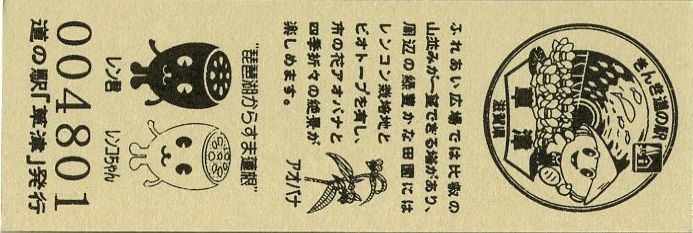 きんき道の駅
草津
滋賀県
ふれあい広場では比叡の
山並みが一望できる場があり、
周辺の緑豊かな田園には
レンコン栽培地と
ビオトープを有し、
市の花アオバナと
四季折々の絶景が
楽しめます。
アオバナ
"琵琶湖からすま蓮根"
レン君
レンコちゃん
004801
道の駅「草津」発行